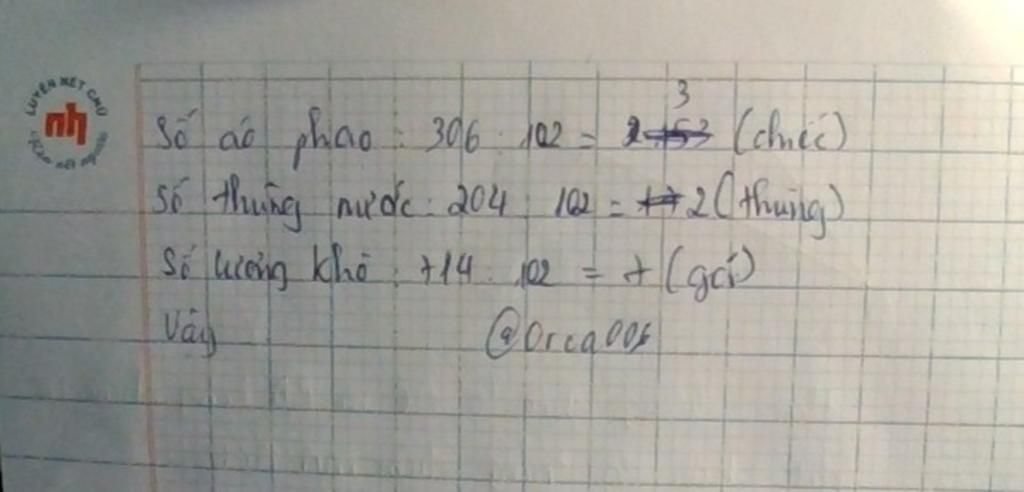 LUYỆN NÉT CHỮ
nh
Rèn nết người
3
Số áo phao : 306 : 102 = (chiếc)
Số thùng nước : 204 : 102 = 2 (thùng)
Số lương khô : 714 : 102 = 7 (gói)
Vậy @Orca006